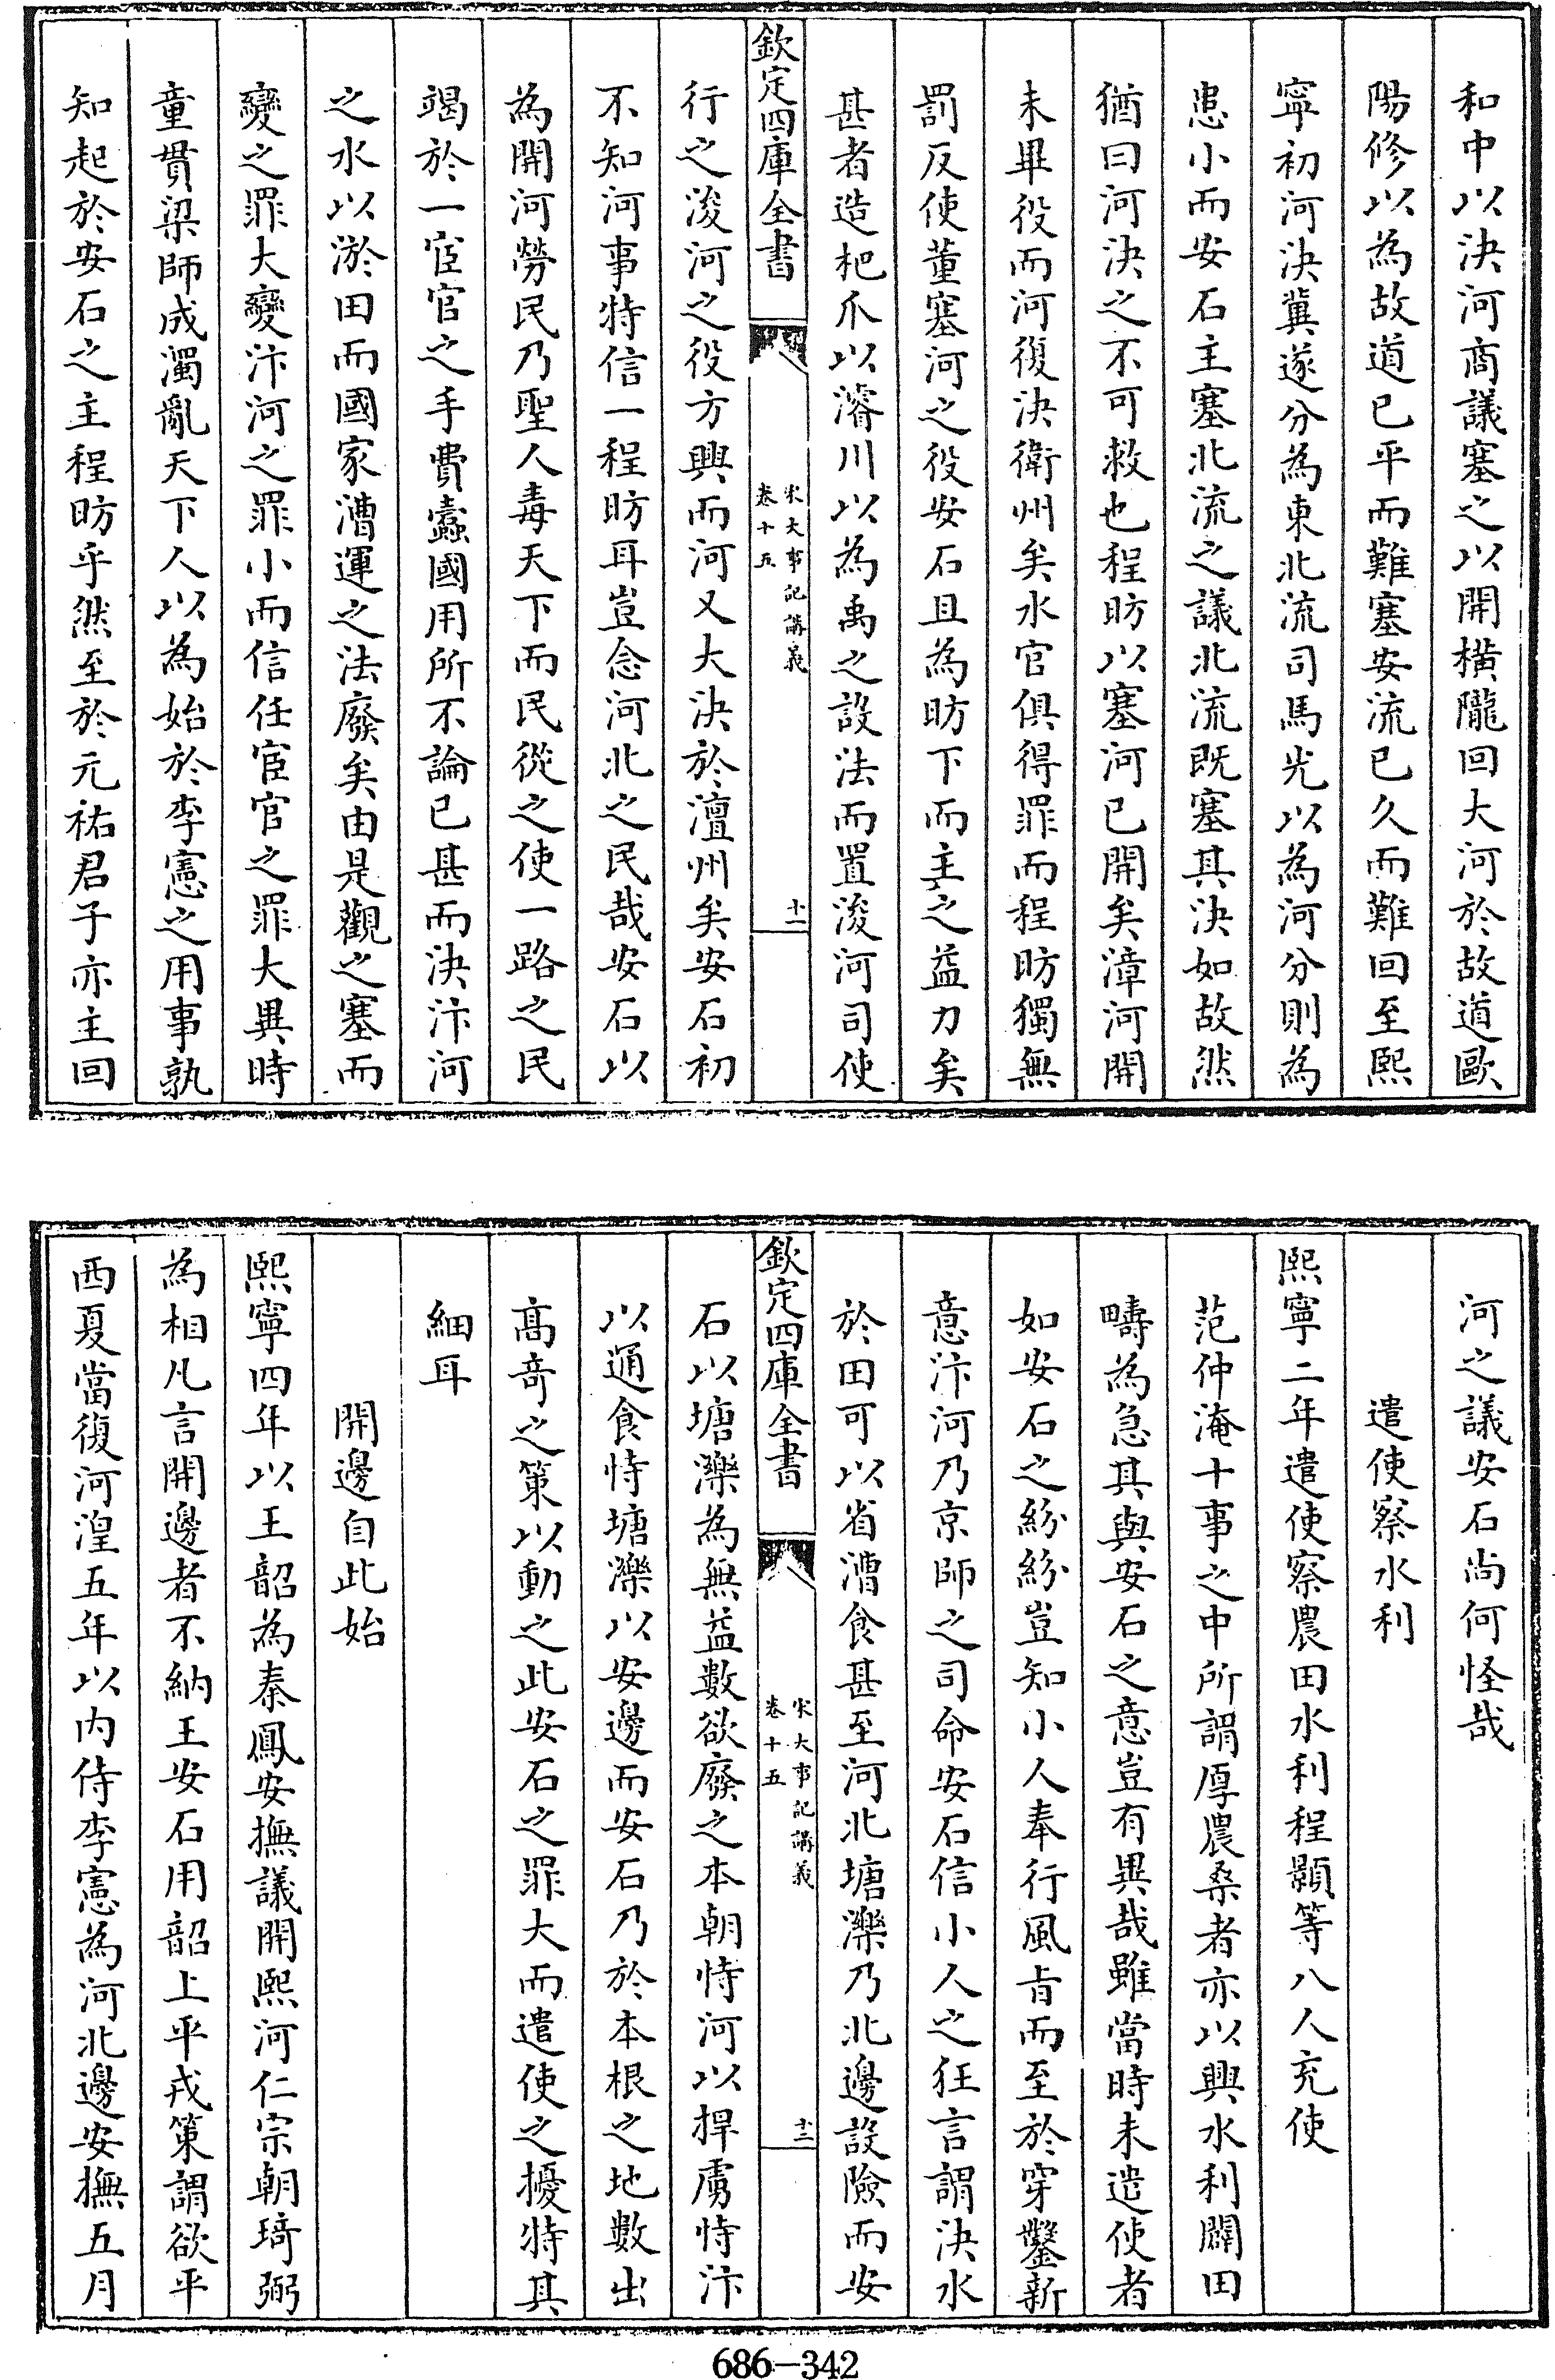 和中以決河商議塞之以開橫隴回大河於故道歐
陽修以為故道已平而難塞安流已久而難回至熙
寧初河決冀遂分為東北流司馬光以為河分則為
患小而安石主塞北流之議北流既塞其決如故然
猶曰河決之不可救也程昉以塞河已開矣漳河開
未畢役而河復決衛州矣水官俱得罪而程昉獨無
罰反使董塞河之役安石且為昉下而主之益力矣
甚者造杷爪以濬川以為禹之設法而置浚河司使
欽定四庫全書
宋大事記講義
卷十五
十一
行之浚河之役方興而河又大決於澶州矣安石初
不知河事特信一程昉耳豈念河北之民哉安石以
為開河勞民乃聖人毒天下而民從之使一路之民
竭於一宦官之手費蠧國用所不論已甚而決汴河
之水以淤田而國家漕運之法廢矣由是觀之塞而
變之罪大變汴河之罪小而信任宦官之罪大異時
童貫梁師成濁亂天下人以為始於李憲之用事孰
知起於安石之主程昉乎然至於元祐君子亦主回
河之議安石尚何怪哉
遣使察水利
熙寧二年遣使察農田水利程顥等八人充使
范仲淹十事之中所謂厚農桑者亦以興水利闢田
疇為急其與安石之意豈有異哉雖當時未遣使者
如安石之紛紛豈知小人奉行風旨而至於穿鑿新
意汴河乃京師之司命安石信小人之狂言謂決水
於田可以省漕食甚至河北塘濼乃北邊設險而安
欽定四庫全書
宋大事記講義
卷十五
十二
石以塘濼為無益數欲廢之本朝恃河以捍虜恃汴
以通食恃塘濼以安邊而安石乃於本根之地數出
高奇之策以動之此安石之罪大而遣使之擾特其
細耳
開邊自此始
熙寧四年以王韶為秦鳳安撫議開熙河仁宗朝琦弼
為相凡言開邊者不納王安石用韶上平戎策謂欲平
西夏當復河湟五年以內侍李憲為河北邊安撫五月
686-342